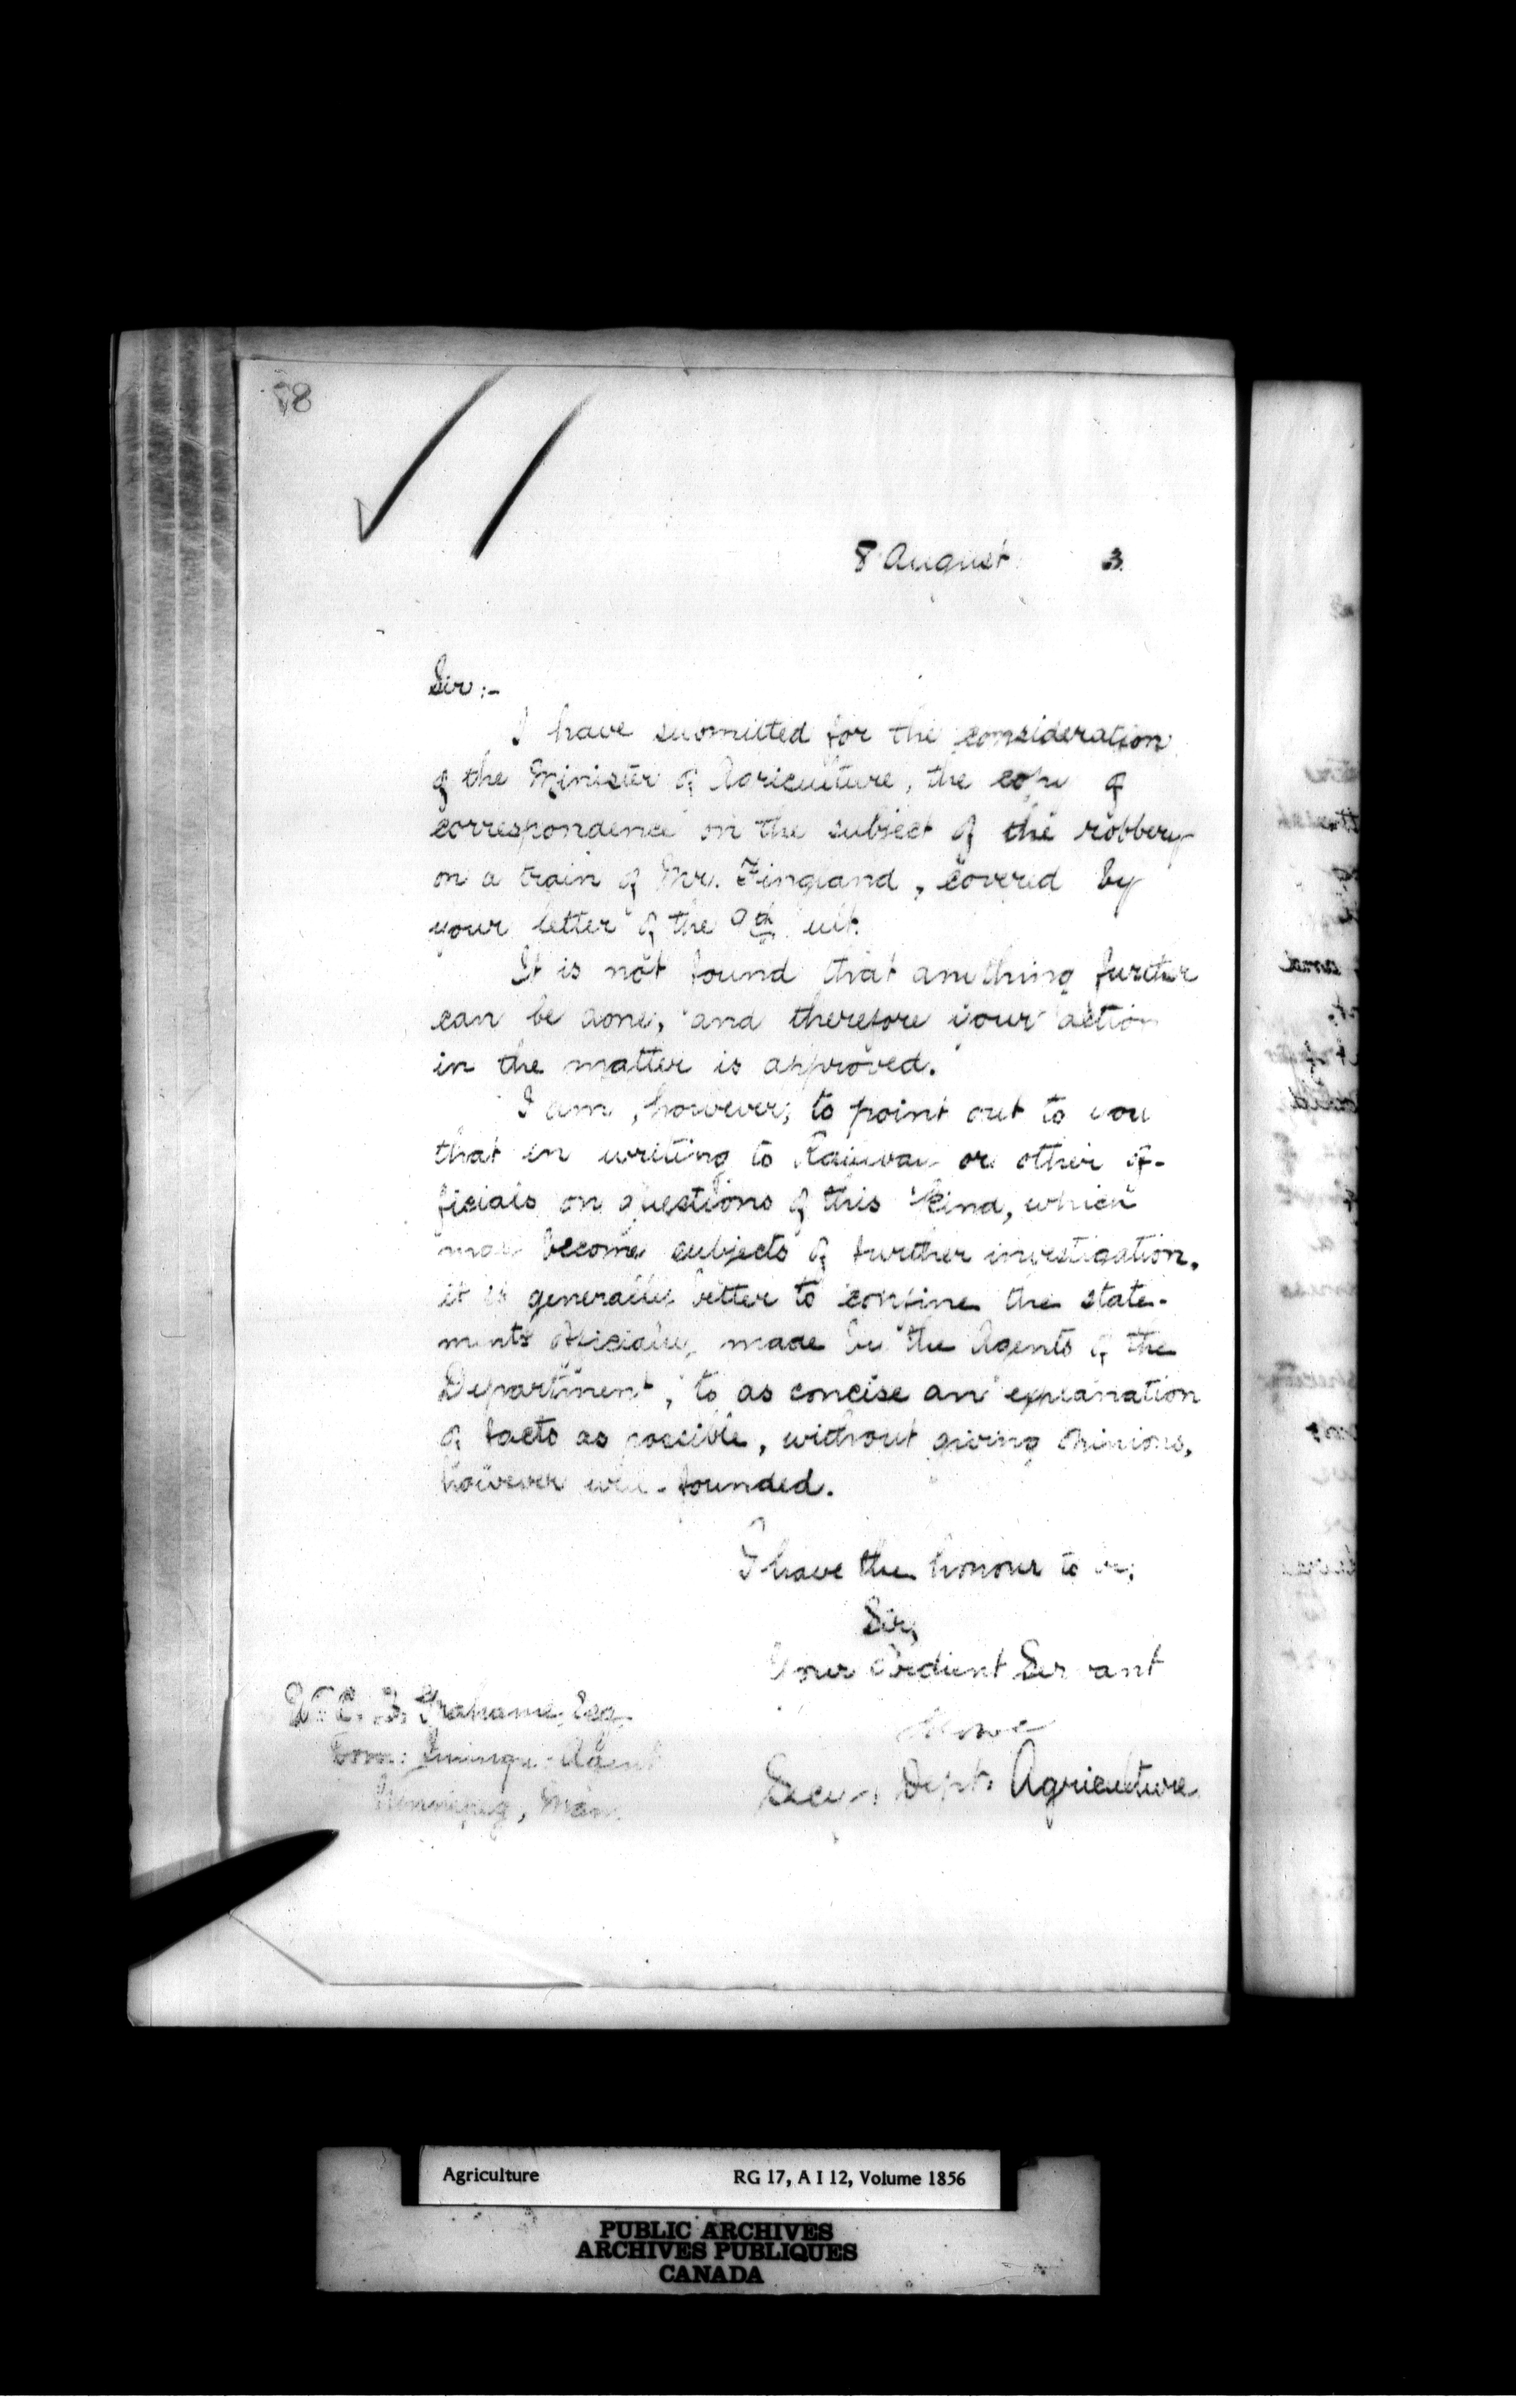 78
8 August 3
Sir:-
I have submitted for the consideration
of the Minister of Agriculture, the copy of
correspondence on the subject of the robbery
on a train of Mr. Fingland, covered by
your letter of the 9th ult.
It is not found that anything further
can be done, and therefore your action
in the matter is approved.
I am, however, to point out to you
that in writing to Railway or other of-
ficials on questions of this kind, which
may become subjects of further investigation,
it is generally better to confine the state-
ments officially made by the Agents of the
Department, to as concise an explanation
of facts as possible, without giving opinions,
however well-founded.
I have the honour to be,
Sir,
Your Obedient Servant
Lowe
Secy. Dept. Agriculture
W. C. B. Grahame, Esq.
Dom: Immign. Agent
Winnipeg, Man.
Agriculture RG 17, A I 12, Volume 1856
PUBLIC ARCHIVES
ARCHIVES PUBLIQUES
CANADA